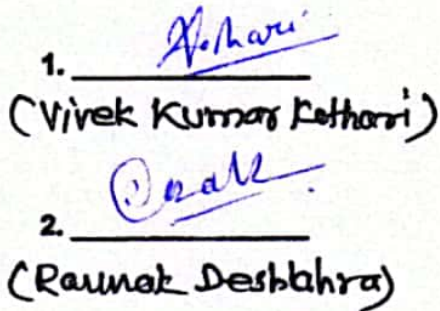 1.
(Vivek Kumar Kothari)
2.
(Raunak Desblahra)